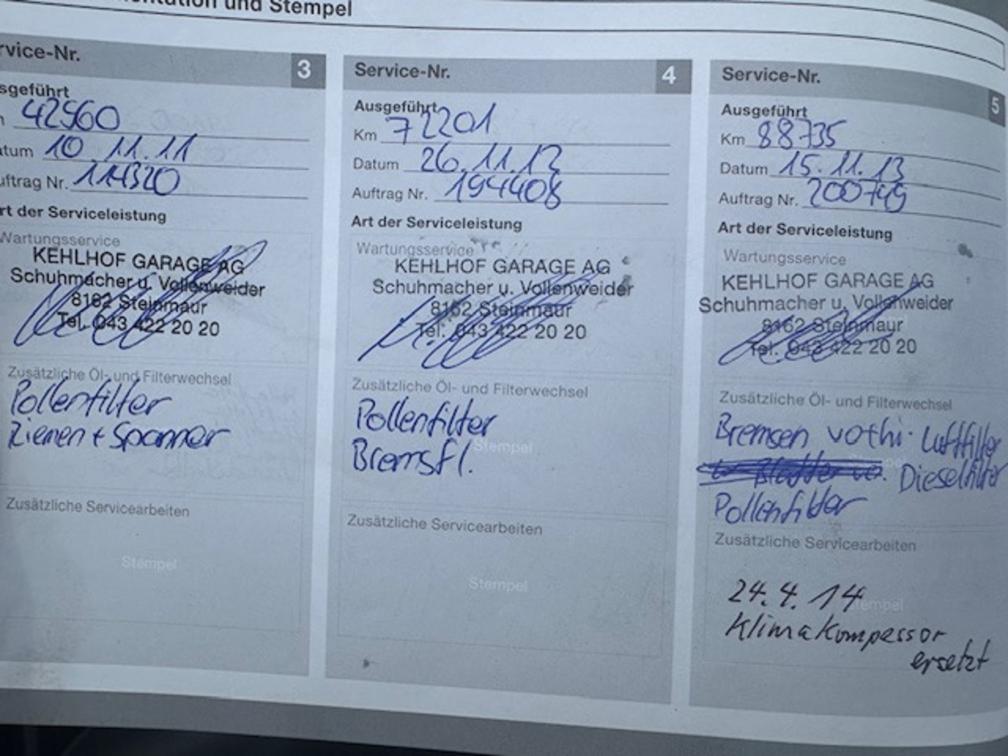 und Stempel
Service-Nr. 3
Ausgeführt
42560
Datum 10 11.11
Auftrag Nr. 114320
Art der Serviceleistung
Wartungsservice
KEHLHOF GARAGE AG
Schuhmacher u. Vollenweider
8162 Steinmaur
Tel. 043 422 20 20
Zusätzliche Öl- und Filterwechsel
Pollenfilter
Riemen + Spanner
Zusätzliche Servicearbeiten
Stempel
Service-Nr. 4
Ausgeführt
Km 72201
Datum 26.11.12
Auftrag Nr. 194408
Art der Serviceleistung
Wartungsservice
KEHLHOF GARAGE AG
Schuhmacher u. Vollenweider
8162 Steinmaur
Tel. 043 422 20 20
Zusätzliche Öl- und Filterwechsel
Pollenfilter
Stempel
Bremsfl.
Zusätzliche Servicearbeiten
Stempel
Service-Nr. 5
Ausgeführt
Km 88735
Datum 15.11.13
Auftrag Nr. 200749
Art der Serviceleistung
Wartungsservice
KEHLHOF GARAGE AG
Schuhmacher u. Vollenweider
8162 Steinmaur
Tel. 043 422 20 20
Zusätzliche Öl- und Filterwechsel
Bremsen vo+hi. Luftfilter
Dieselfilter
Pollenfilter
Zusätzliche Servicearbeiten
24.4.14
Stempel
Klimakompassor
ersetzt